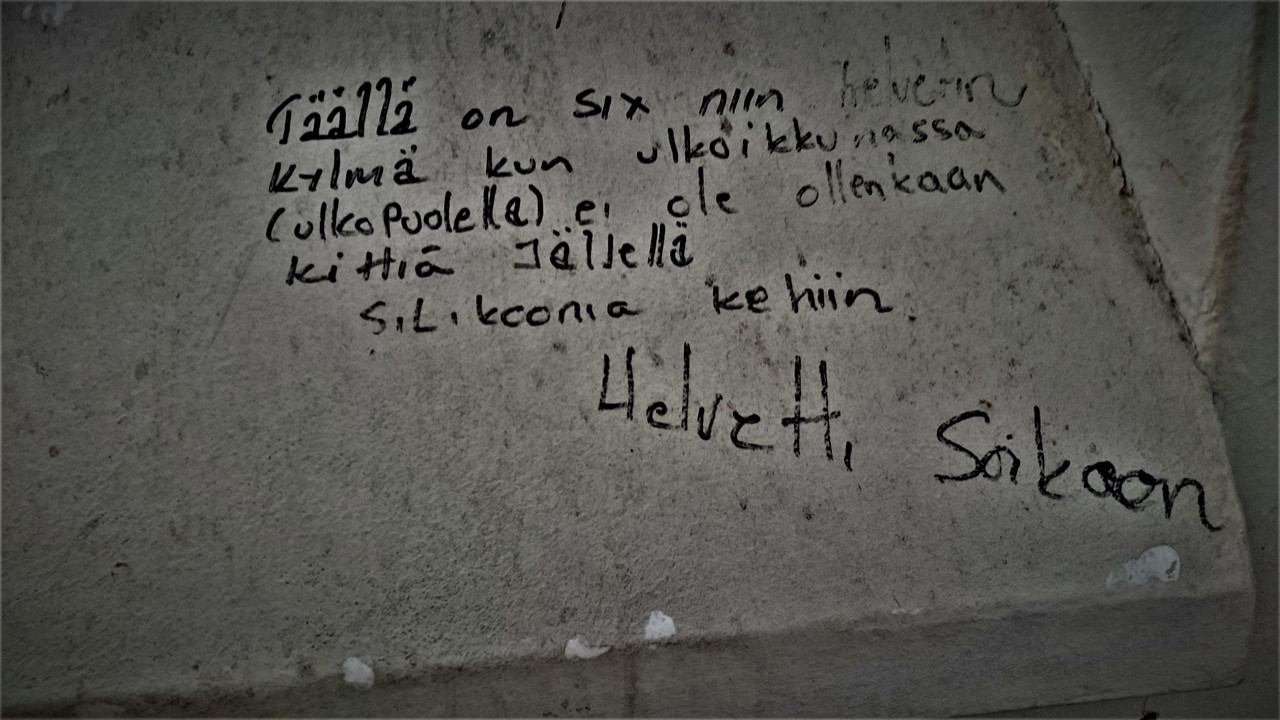 Täällä on six niin helvetin
kylmä kun ulkoikkunassa
(ulkopuolella) ei ole ollenkaan
kittiä Jäljellä
SiLikoonia kehiin.
Helvetti Soikoon